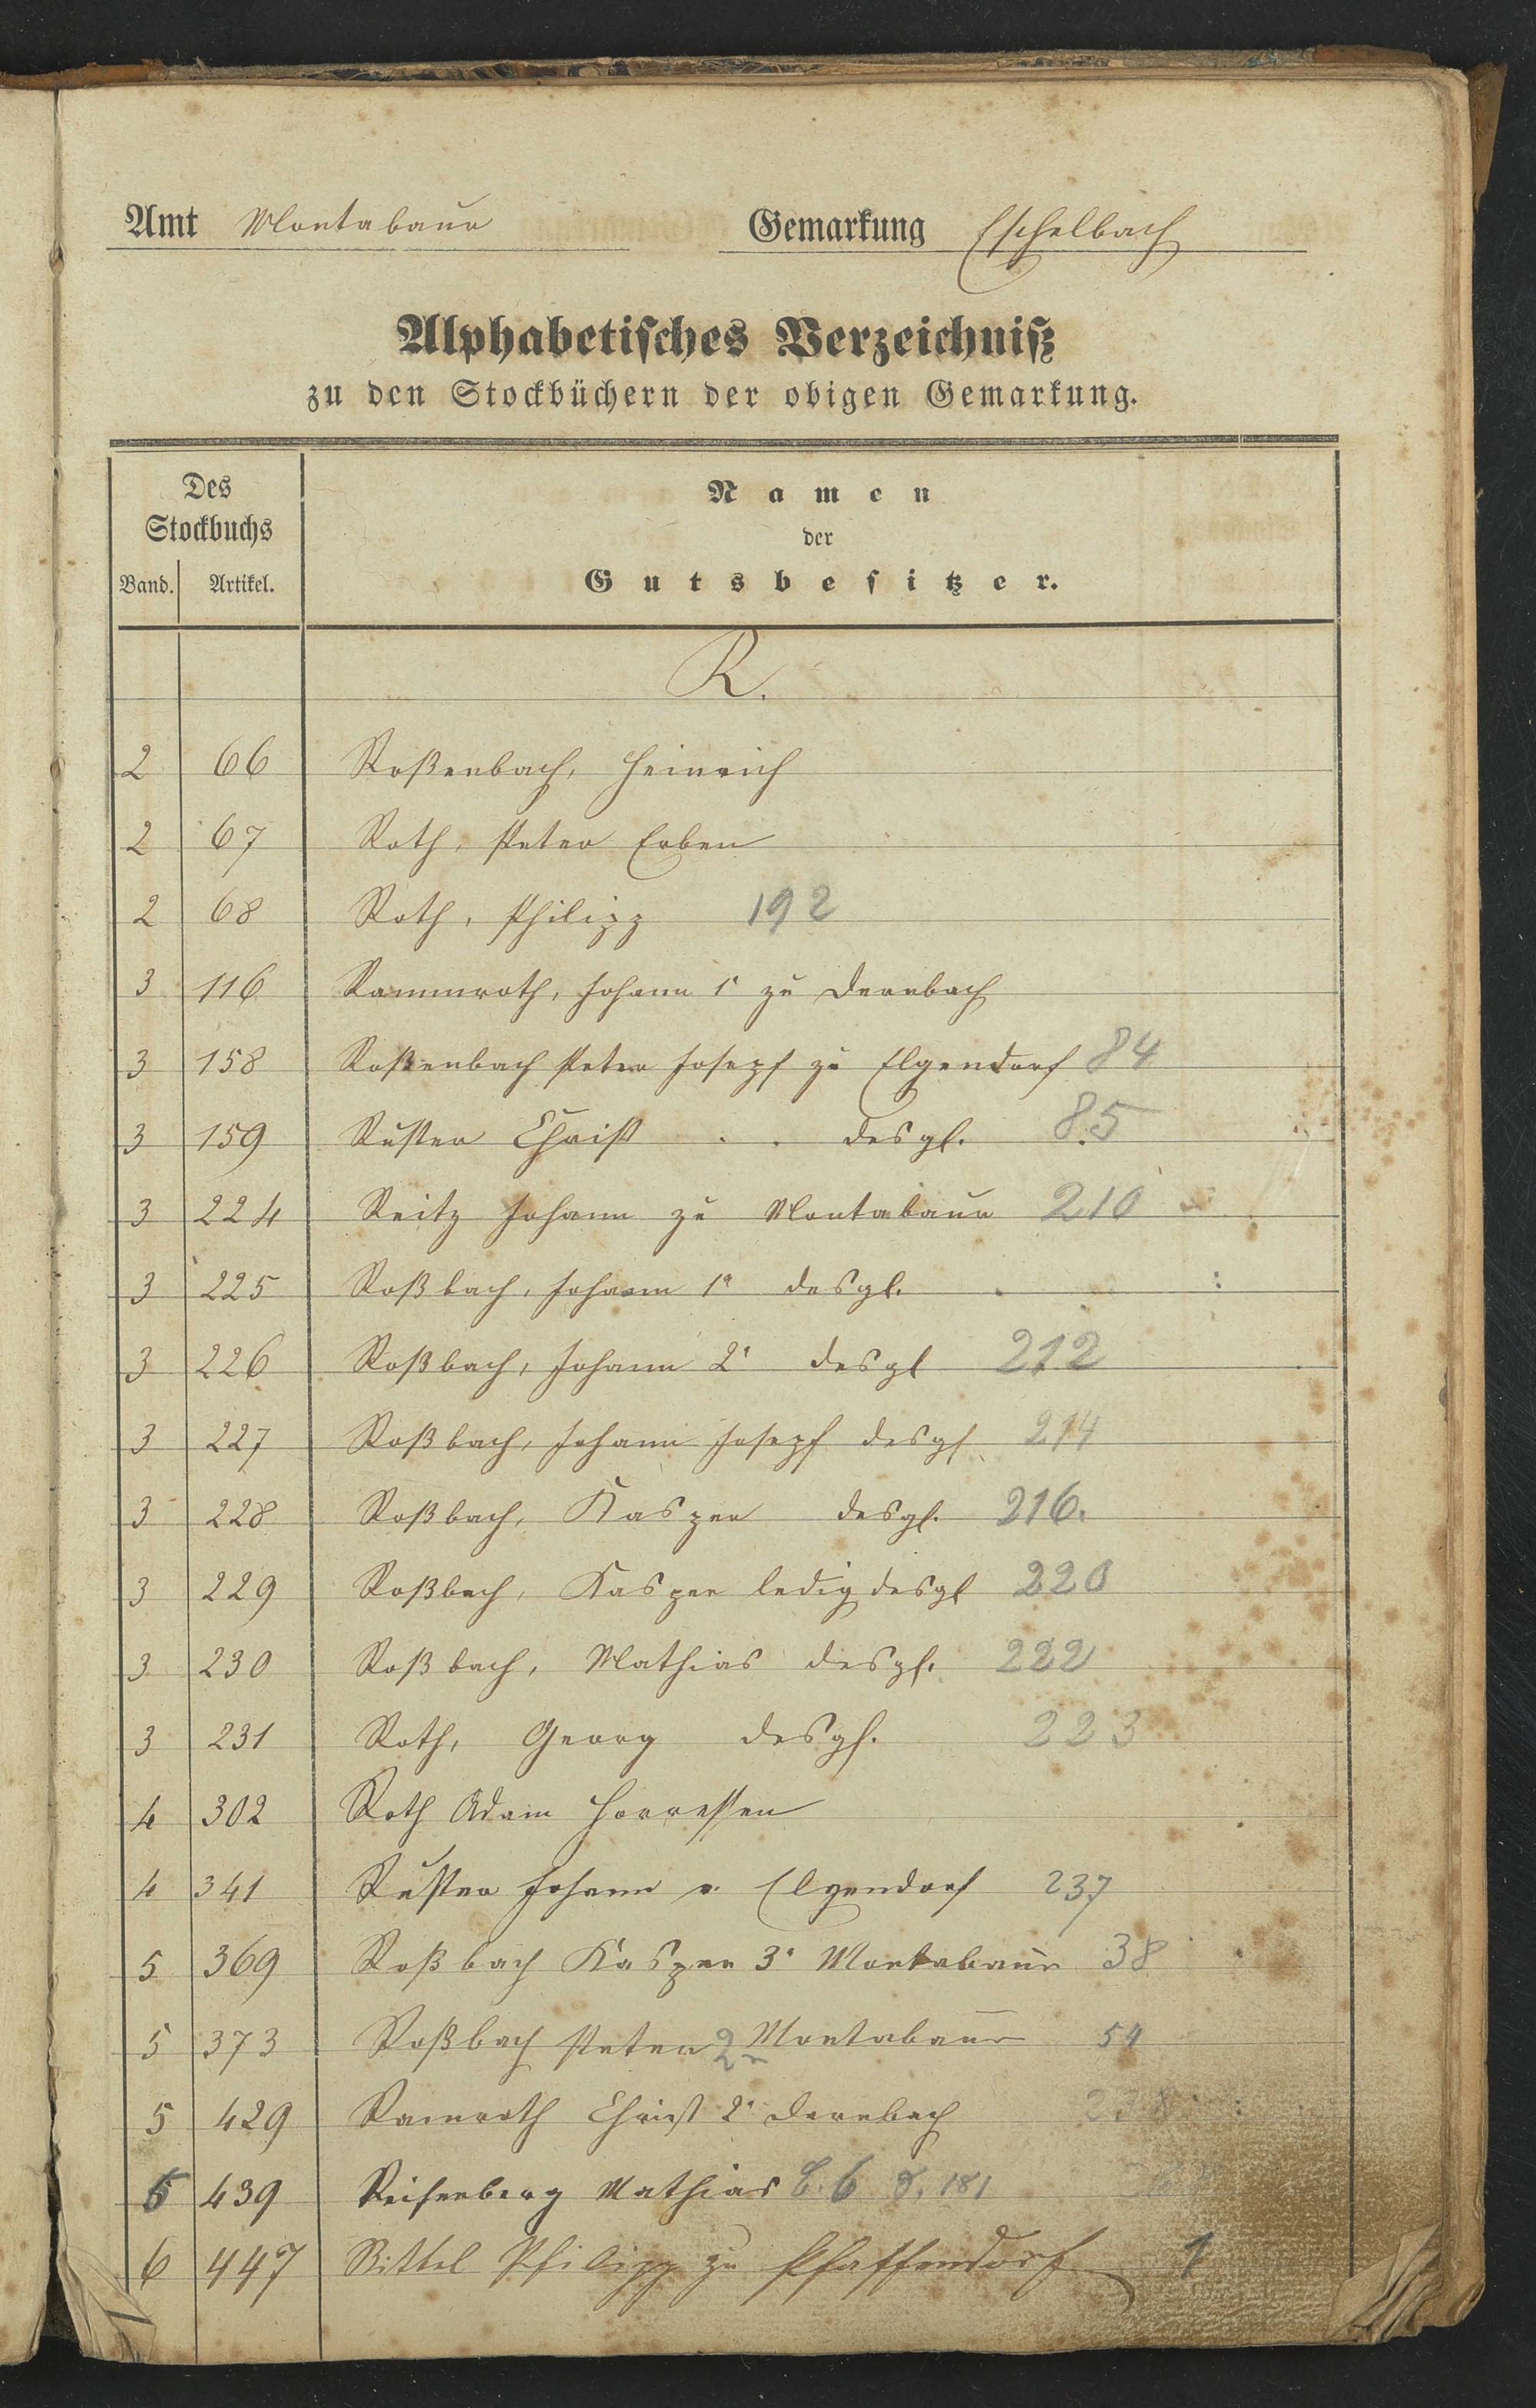 Amt Montabaur Gemarkung Eschelbach
Alphabetisches Verzeichniß
zu den Stockbüchern der obigen Gemarkung.
Des Stockbuchs
Band. Artikel.
Namen
der
Gutsbesitzer.
R.
2 66 Roßenbach, Heinrich
2 67 Roth, Peter Erben
2 68 Roth, Philipp 192
3 116 Rammroth, Johann 1r zu Dernbach
3 158 Roßenbach Peter Josepf zu Elgendorf 84
3 159 Rüster Christ . . desgl. 85
3 224 Reitz Johann zu Montabaur 210
3 225 Roßbach, Johann 1r desgl.
3 226 Roßbach, Johann 2r desgl 212
3 227 Roßbach, Johann Josepf desgl. 214
3 228 Roßbach, Kasper desgl. 216.
3 229 Roßbach, Kasper ledig desgl 220
3 230 Roßbach, Mathias desgl. 222
3 231 Roth, Georg desgl. 223
4 302 Roth Adam Horressen
4 341 Rüster Johann v. Elgendorf 237
5 369 Roßbach Kasper 3r Montabaur 38
5 373 Roßbach Peter 2r Montabaur 54
5 429 Ramroth Christ 2r Dernbach 238
439 Reifenberg Mathias B. 6 S. 181
6 447 Rittel Philipp zu Pfaffendorf 1